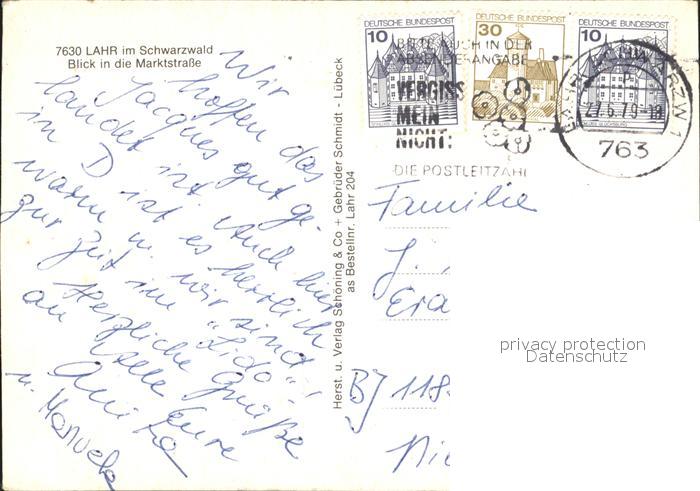 7630 LAHR im Schwarzwald
Blick in die Marktstraße
Wir
hoffen das
Jacques gut ge-
landet ist. Auch hier
in D ist es herrlich
warm u. wir sind
zur Zeit im "Lido"!
Herzliche Grüße
an alle Eure
Anita
u. Manuela
Herst. u. Verlag Schöning & Co + Gebrüder Schmidt - Lübeck
as Bestellnr. Lahr 204
DEUTSCHE BUNDESPOST
10
DEUTSCHE BUNDESPOST
30
DEUTSCHE BUNDESPOST
10
BITTE AUCH IN DER
ABSENDERANGABE
VERGISS
MEIN
NICHT:
DIE POSTLEITZAHL
27.6.79-18
763
Familie
J.
Era
BJ 118
Nie
privacy protection
Datenschutz